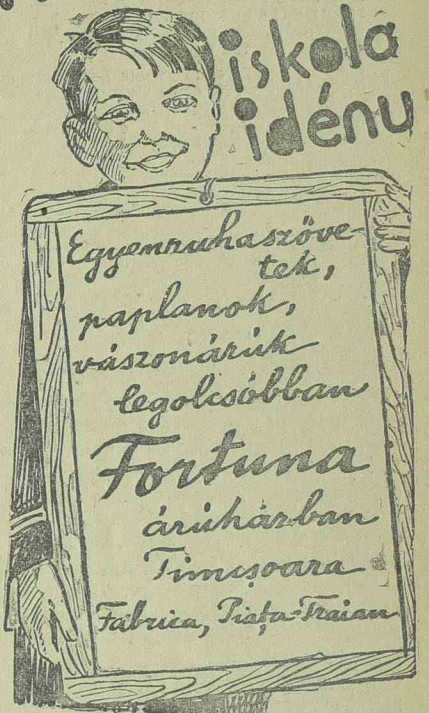 iskola
idény
Egyenruhaszöve-
tek,
paplanok,
vászonárúk
legolcsóbban
Fortuna
árúházban
Timișoara
Fabrica, Piața-Traian